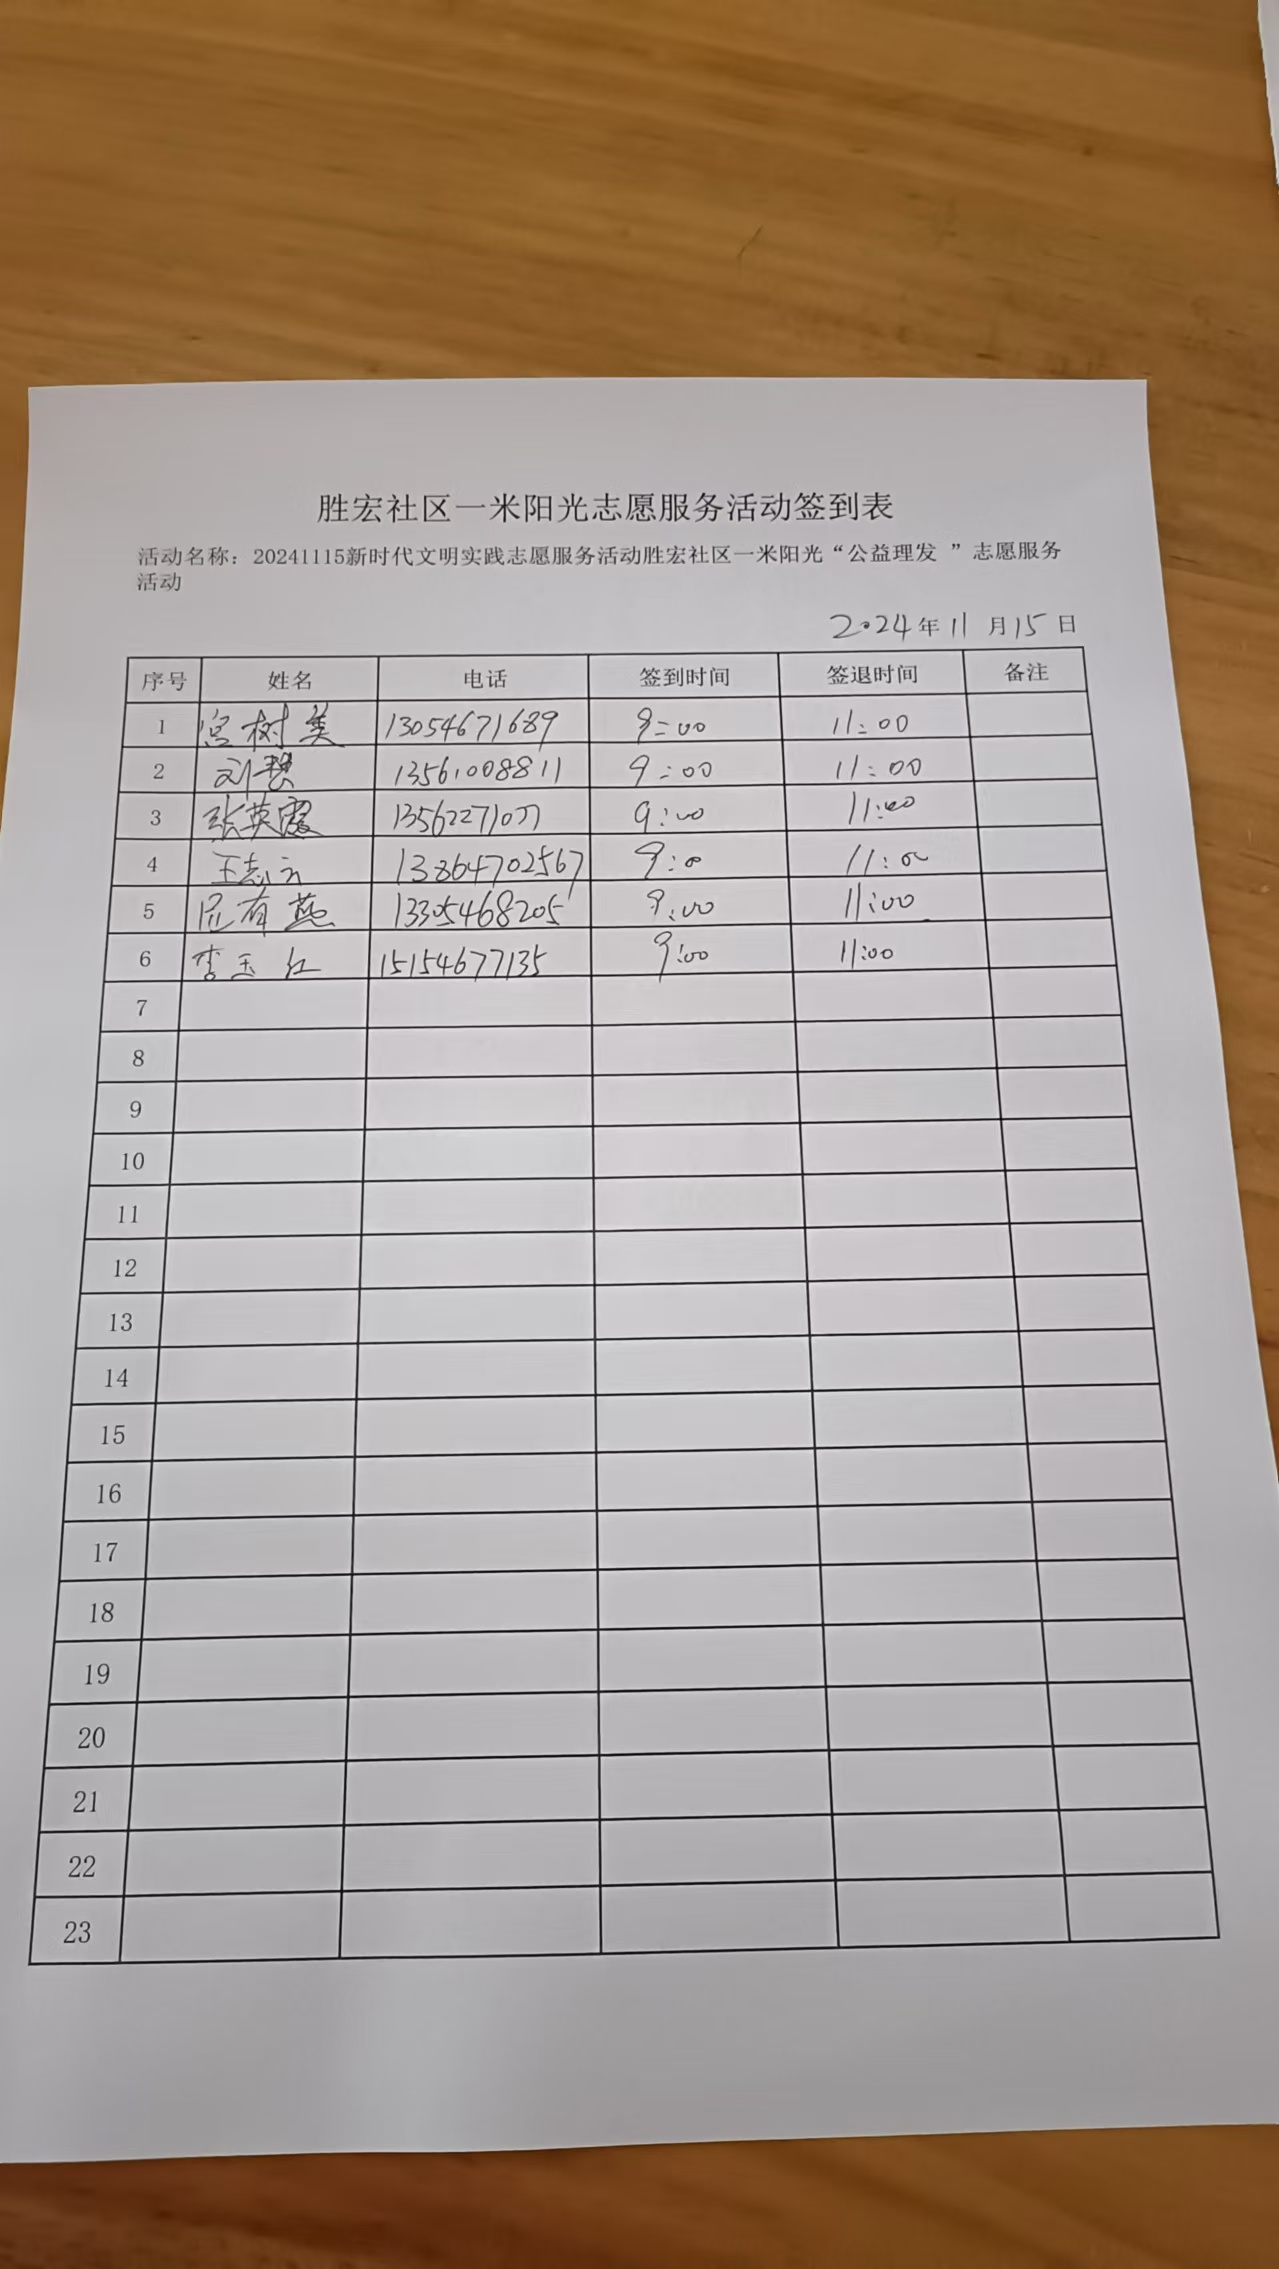 胜宏社区一米阳光志愿服务活动签到表
活动名称：20241115新时代文明实践志愿服务活动胜宏社区一米阳光“公益理发 ”志愿服务
活动
2024年11月15日
序号 姓名 电话 签到时间 签退时间 备注
1 宫树美 13054671689 9:00 11:00
2 刘慧 13561008811 9:00 11:00
3 张英霞 13562271077 9:00 11:00
4 王志云 13864702567 9:00 11:00
5 有燕 13305468205 9:00 11:00
6 李玉红 15154677135 9:00 11:00
7
8
9
10
11
12
13
14
15
16
17
18
19
20
21
22
23